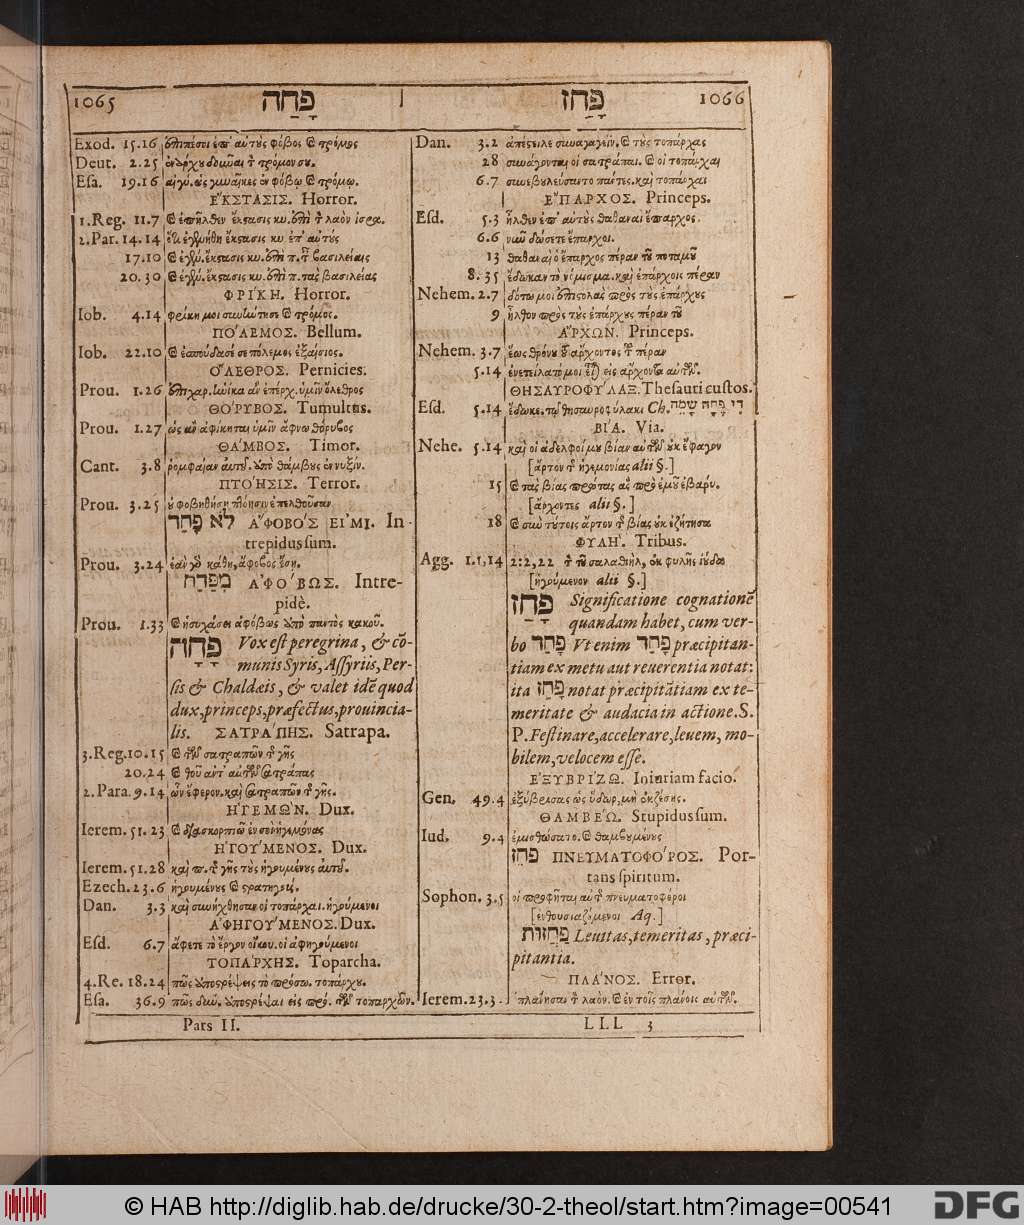 1065 פָּחַה
Exod. 15.16 ἐπιπέσοι ἐπ' αὐτοὺς φόβος καὶ τρόμος
Deut. 2.25
Esa. 19.16 ἐν φόβῳ καὶ τρόμῳ.
ἜΚΣΤΑΣΙΣ. Horror.
1.Reg. 11.7 καὶ ἐπῆλθεν ἔκστασις κυ. ἐπὶ τ λαὸν
2.Par. 14.14 ἔκστασις κυ ἐπ' αὐτούς
17.10 καὶ ἐγέν. ἔκστασις κυ. ἐπὶ π. τ βασιλείαις
20.30 καὶ ἐγέν. ἔκστασις κυ. ἐπὶ π. τὰς βασιλείας
ΦΡΙΚΗ. Horror.
Iob. 4.14 φρίκη μοι συνήντησε καὶ τρόμος.
ΠΟΛΕΜΟΣ. Bellum.
Iob. 22.10 καὶ ἐσπούδασέ σε πόλεμος ἐξαίσιος.
ὌΛΕΘΡΟΣ. Pernicies.
Prou. 1.26 ὑμῖν ὄλεθρος
ΘΟΡΥΒΟΣ. Tumultus.
Prou. 1.27 ὡς ἂν ἀφίκηται ὑμῖν ἄφνω θόρυβος
ΘΑΜΒΟΣ. Timor.
Cant. 3.8 ῥομφαίαν αὐτοῦ. ὑπὸ θάμβους ἐν νυξίν.
ΠΤΟΗΣΙΣ. Terror.
Prou. 3.25 οὐ φοβηθήσῃ πτόησιν ἐπελθοῦσαν
לֹא פָּחַד ἌΦΟΒΟΣ ΕἸΜΙ. In-
trepidus sum.
Prou. 3.24 ἄφοβος ἔσῃ.
מִפַּחַד ἈΦΟΒΩΣ. Intre-
pidè.
Prou. 1.33 καὶ ἡσυχάσει ἀφόβως ὑπὸ παντὸς κακοῦ.
פֶּחָה Vox est peregrina, & cõ-
munis Syris, Assyriis, Per-
sis & Chaldæis, & valet idẽ quod
dux, princeps, præfectus, prouincia-
lis. ΣΑΤΡΑΠΗΣ. Satrapa.
3.Reg. 10.15 καὶ τῶν σατραπῶν τ γῆς
20.24 καὶ θοῦ ἀντ' αὐτῶν σατράπας
2.Para. 9.14 ὧν ἔφερον. καὶ σατραπῶν τ γῆς.
ἩΓΕΜΩΝ. Dux.
Ierem. 51.23 καὶ διασκορπιῶ ἐν σοὶ ἡγεμόνας
ἩΓΟΥΜΕΝΟΣ. Dux.
Ierem. 51.28 καὶ π. τ γῆς τοὺς ἡγουμένους αὐτοῦ.
Ezech. 23.6 ἡγουμένους καὶ στρατηγούς.
Dan. 3.3 καὶ συνήχθησαν οἱ τοπάρχαι. ἡγούμενοι
ἈΦΗΓΟΥΜΕΝΟΣ. Dux.
Esd. 6.7 ἄφετε τὸ ἔργον οἴκου. οἱ ἀφηγούμενοι
ΤΟΠΑΡΧΗΣ. Toparcha.
4.Re. 18.24 πῶς ἀποστρέψεις τὸ πρόσω. τοπάρχου.
Esa. 36.9 πῶς δυν. ἀποστρέψαι εἰς πρό. τῶν τοπαρχῶν.
Pars II.
פָּחַז 1066
Dan. 3.2 ἀπέστειλε συναγαγεῖν. καὶ τοὺς τοπάρχας
28 συνάγονται οἱ σατράπαι. καὶ οἱ τοπάρχαι
6.7 συνεβουλεύσαντο πάντες. καὶ τοπάρχαι
ἜΠΑΡΧΟΣ. Princeps.
Esd. 5.3 ἦλθεν ἐπ' αὐτοὺς θαθαναὶ ἔπαρχος.
6.6 νῦν δώσετε ἔπαρχοι.
13 θαθαναὶ ὁ ἔπαρχος πέραν τοῦ ποταμοῦ
8.35 ἔδωκαν τὸ νόμισμα. καὶ ἐπάρχοις πέραν
Nehem. 2.7 δότω μοι ἐπιστολὰς πρὸς τοὺς ἐπάρχους
9 ἦλθον πρὸς τοὺς ἐπάρχους πέραν τοῦ
ἌΡΧΩΝ. Princeps.
Nehem. 3.7 ἕως θρόνου τοῦ ἄρχοντος τ πέραν
5.14 ἐνετείλατό μοι εἶναι εἰς ἄρχοντα αὐτῶν.
ΘΗΣΑΥΡΟΦΥΛΑΞ. Thesauri custos.
Esd. 5.14 ἔδωκε. τῷ θησαυροφύλακι Ch. דִּי פֶחָה שָׂמֵהּ
ΒΙΑ. Via.
Nehe. 5.14 καὶ οἱ ἀδελφοί μου βίαν αὐτῶν οὐκ ἔφαγον
[ἄρτον τ ἡγεμονίας alii §.]
15 καὶ τὰς βίας πρώτας ἃς πρὸ ἐμοῦ ἐβάρυ.
[ἄρχοντες alii §.]
18 καὶ σὺν τούτοις ἄρτον τ βίας οὐκ ἐζήτησα
ΦΥΛΗ. Tribus.
Agg. 1.1,14 2:2,22 τ τοῦ σαλαθιὴλ, ἐκ φυλῆς ἰούδα
[ἡγούμενον alii §.]
פָּחַז Significatione cognationẽ
quandam habet, cum ver-
bo פָּחַד Vt enim פָּחַד præcipitan-
tiam ex metu aut reuerentia notat:
ita פָּחַז notat præcipitãtiam ex te-
meritate & audacia in actione. S.
P. Festinare, accelerare, leuem, mo-
bilem, velocem esse.
ἘΞΥΒΡΙΖΩ. Iniuriam facio.
Gen. 49.4 ἐξύβρισας ὡς ὕδωρ, μὴ ἐκζέσῃς.
ΘΑΜΒΕΩ. Stupidus sum.
Iud. 9.4 ἐμισθώσατο. καὶ θαμβουμένους
פֹּחֵז ΠΝΕΥΜΑΤΟΦΟΡΟΣ. Por-
tans spiritum.
Sophon. 3.5 οἱ προφῆται αὐτ πνευματοφόροι
[ἐνθουσιαζόμενοι Aq.]
פַּחֲזוּת Leuitas, temeritas, præci-
pitantia.
ΠΛΑΝΟΣ. Error.
Ierem. 23.3. ἐπλάνησαν τ λαόν. καὶ ἐν τοῖς πλάνοις αὐτῶν.
LLL 3
© HAB http://diglib.hab.de/drucke/30-2-theol/start.htm?image=00541
DFG